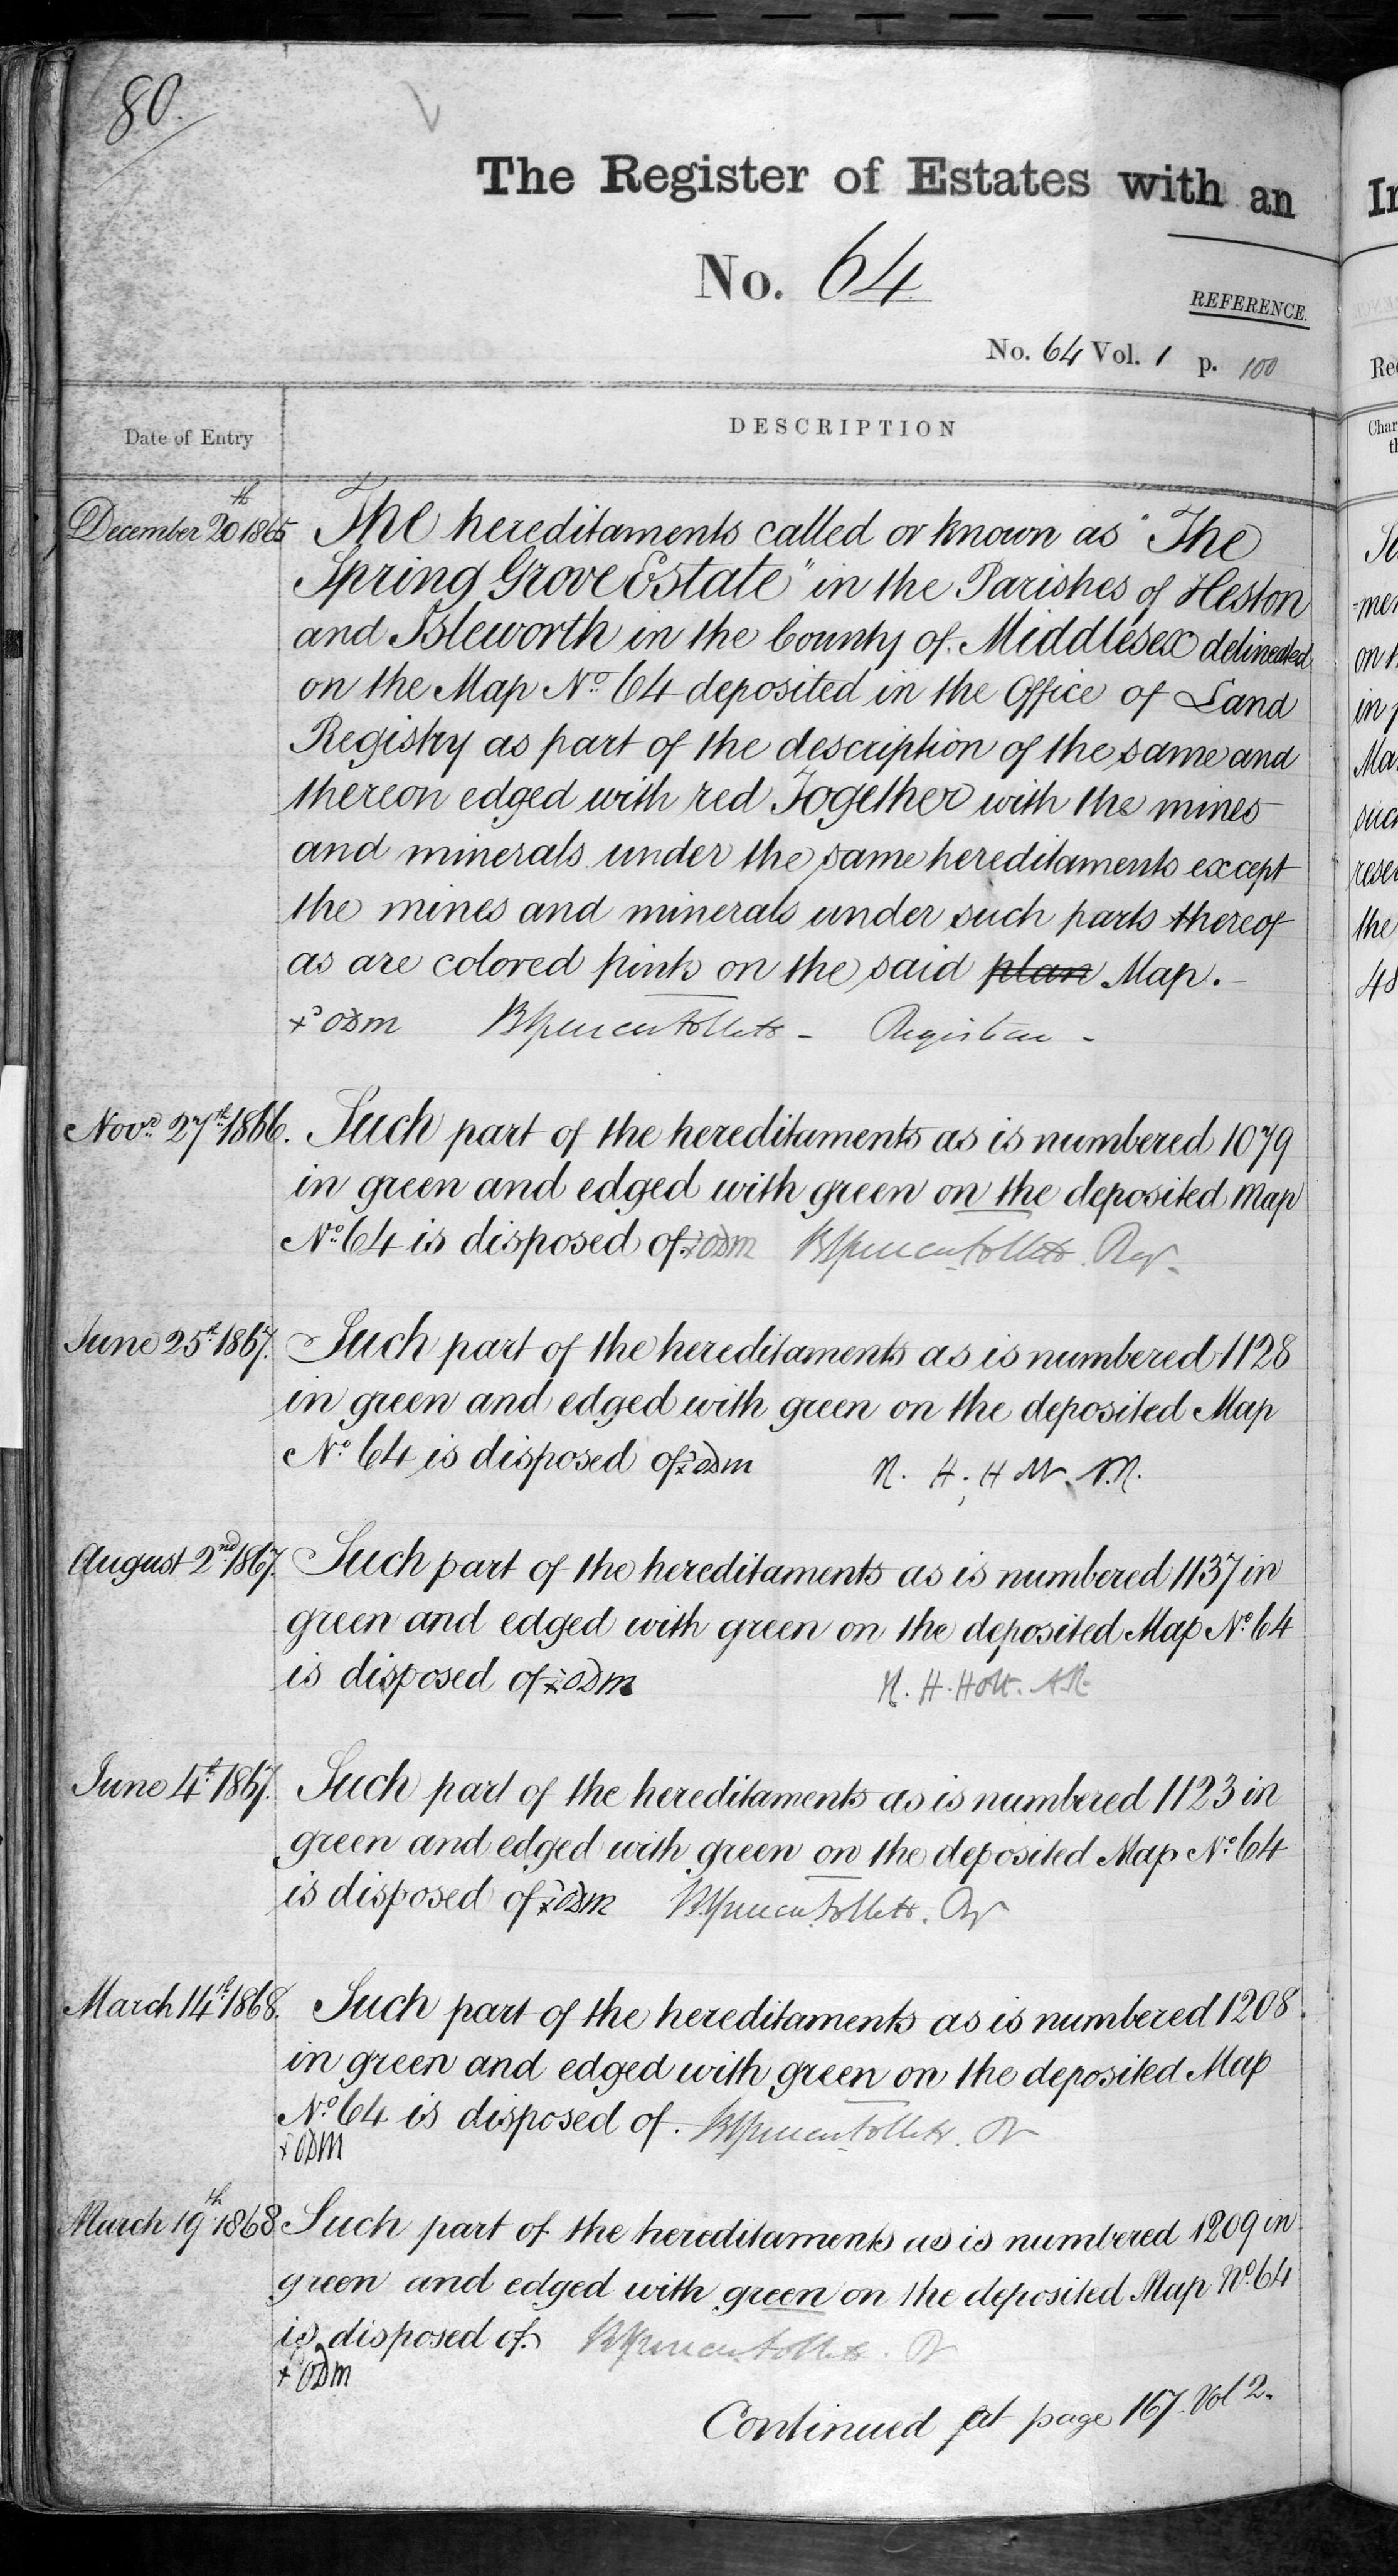 80.
The Register of Estates with an
No. 64
REFERENCE.
No. 64 Vol. 1 p. 100
Date of Entry
DESCRIPTION
December 20th 1865
The hereditaments called or known as "The
Spring Grove Estate" in the Parishes of Heston
and Isleworth in the County of Middlesex delineated
on the Map No. 64 deposited in the Office of Land
Registry as part of the description of the same and
thereon edged with red Together with the mines
and minerals under the same hereditaments except
the mines and minerals under such parts thereof
as are colored pink on the said plan Map.
Registrar
Novr. 27th 1866.
Such part of the hereditaments as is numbered 1079
in green and edged with green on the deposited map
No. 64 is disposed of
June 25th 1867.
Such part of the hereditaments as is numbered 1128
in green and edged with green on the deposited Map
No. 64 is disposed of
August 2nd 1867.
Such part of the hereditaments as is numbered 1137 in
green and edged with green on the deposited Map No. 64
is disposed of
H. Holt. A.R.
June 4th 1867.
Such part of the hereditaments as is numbered 1123 in
green and edged with green on the deposited Map No. 64
is disposed of
March 14th 1868.
Such part of the hereditaments as is numbered 1208
in green and edged with green on the deposited Map
No. 64 is disposed of.
March 19th 1868
Such part of the hereditaments as is numbered 1209 in
green and edged with green on the deposited Map No. 64
is disposed of.
Continued at page 167. Vol 2.